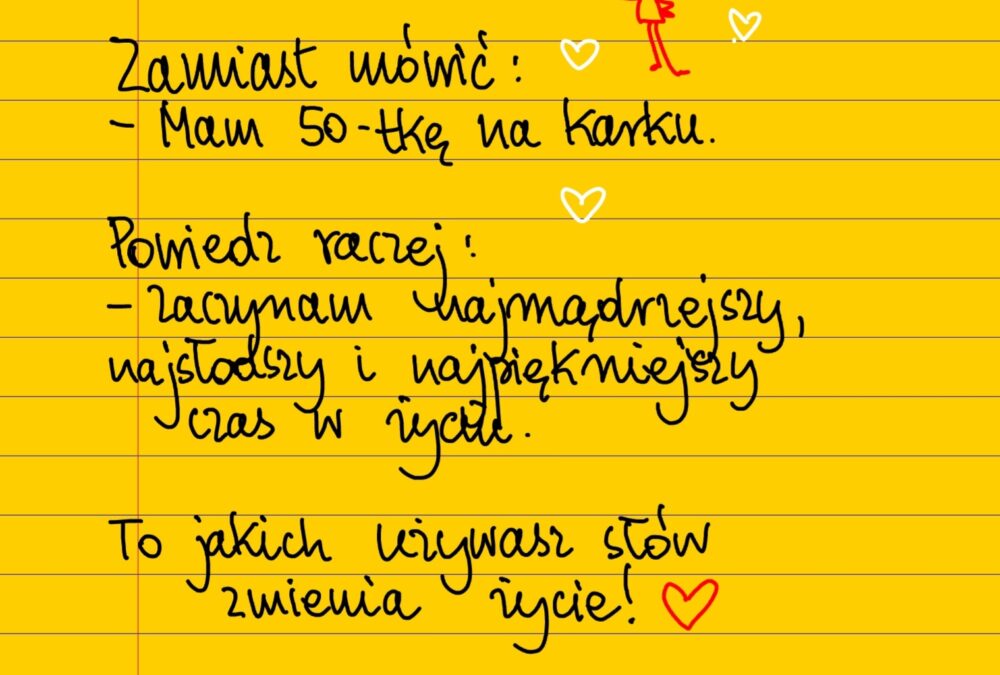 Zamiast mówić:
- Mam 50-tkę na karku.
Powiedz raczej:
- zaczynam najmądrzejszy,
najsłodszy i najpiękniejszy
czas w życiu.
To jakich używasz słów
zmienia życie!